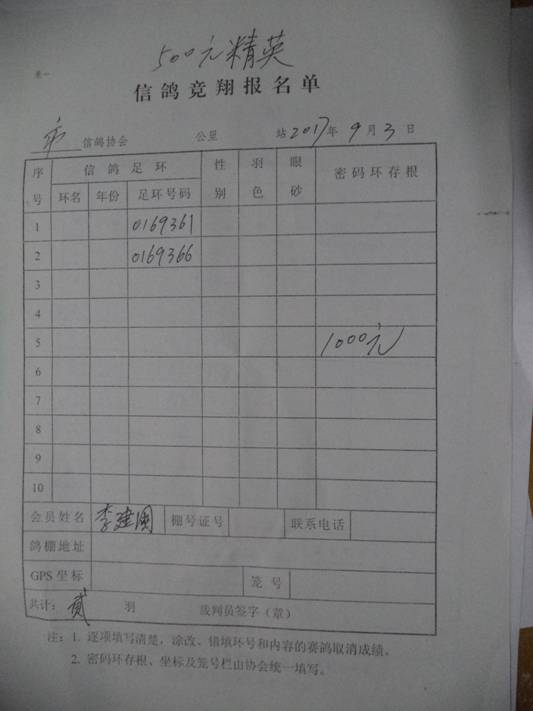 表一
500元精英
信鸽竞翔报名单
市 信鸽协会 公里 站 2017年 9月 3日
序号 信鸽足环 性别 羽色 眼砂 密码环存根
环名 年份 足环号码
1 0169361
2 0169366
3
4
5 1000元
6
7
8
9
10
会员姓名 李建国 棚号证号 联系电话
鸽棚地址
GPS坐标 笼号
共计: 贰 羽 裁判员签字(章)
注: 1. 逐项填写清楚，涂改、错填环号和内容的赛鸽取消成绩。
2. 密码环存根、坐标及笼号栏由协会统一填写。